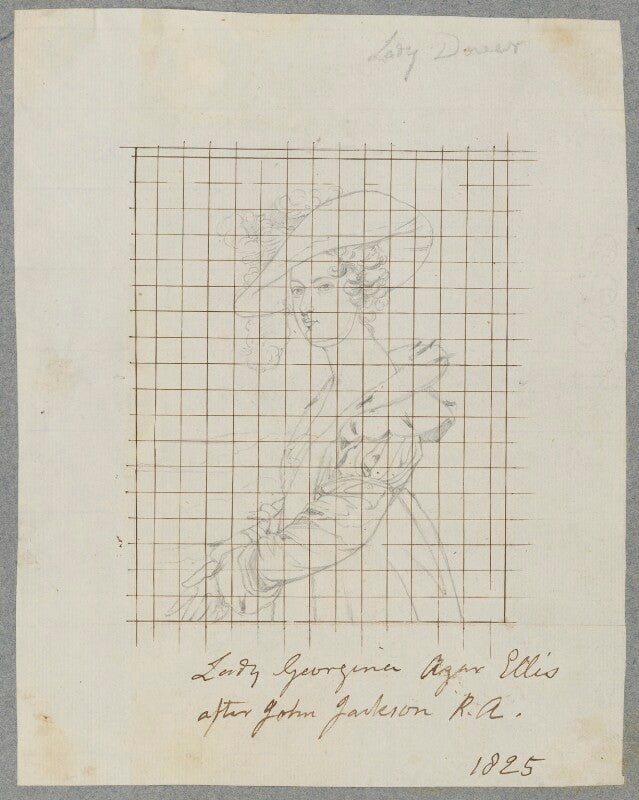 Lady Dover
Lady Georgina Agar Ellis
after John Jackson R.A.
1825